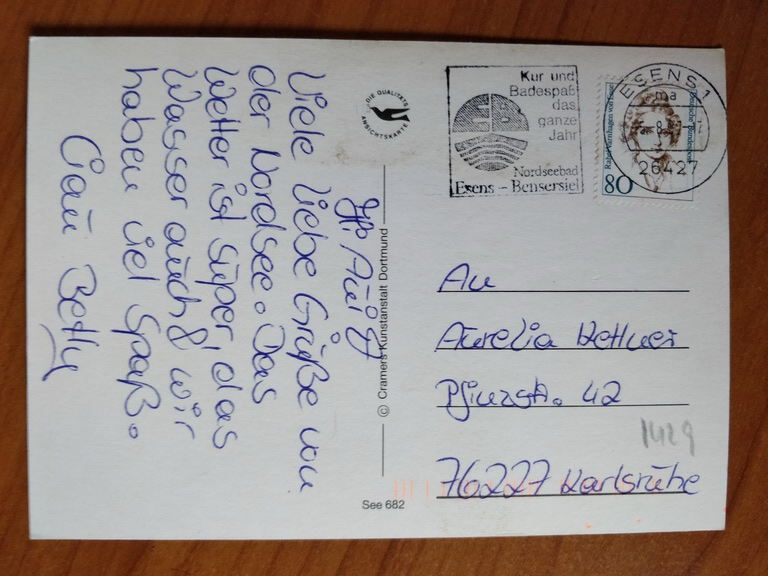 Viele liebe Grüße von
der Nordsee. Das
Wetter ist super, das
Wasser auch & wir
haben viel Spaß.
Ciau Betty
DIE QUALITÄTS
ANSICHTSKARTE
© Cramers Kunstanstalt Dortmund
See 682
Kur und
Badespaß
das
ganze
Jahr
Nordseebad
Esens - Bensersiel
Rahel Varnhagen von Ense
Deutsche Bundespost
80
ESENS 1
ma
26427
An
Aurelia Kettner
Pfinzstr. 42
1429
76227 Karlsruhe